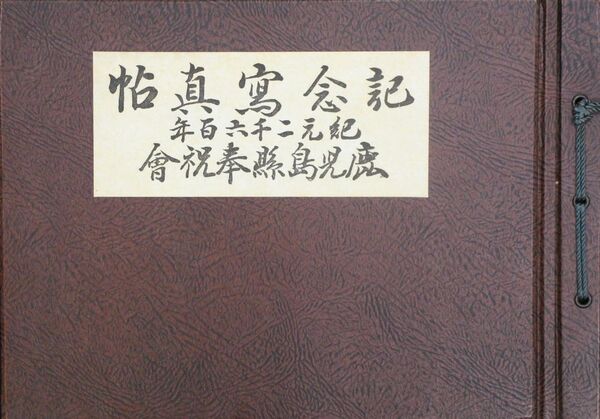 記念寫真帖
紀元二千六百年
鹿児島縣奉祝會